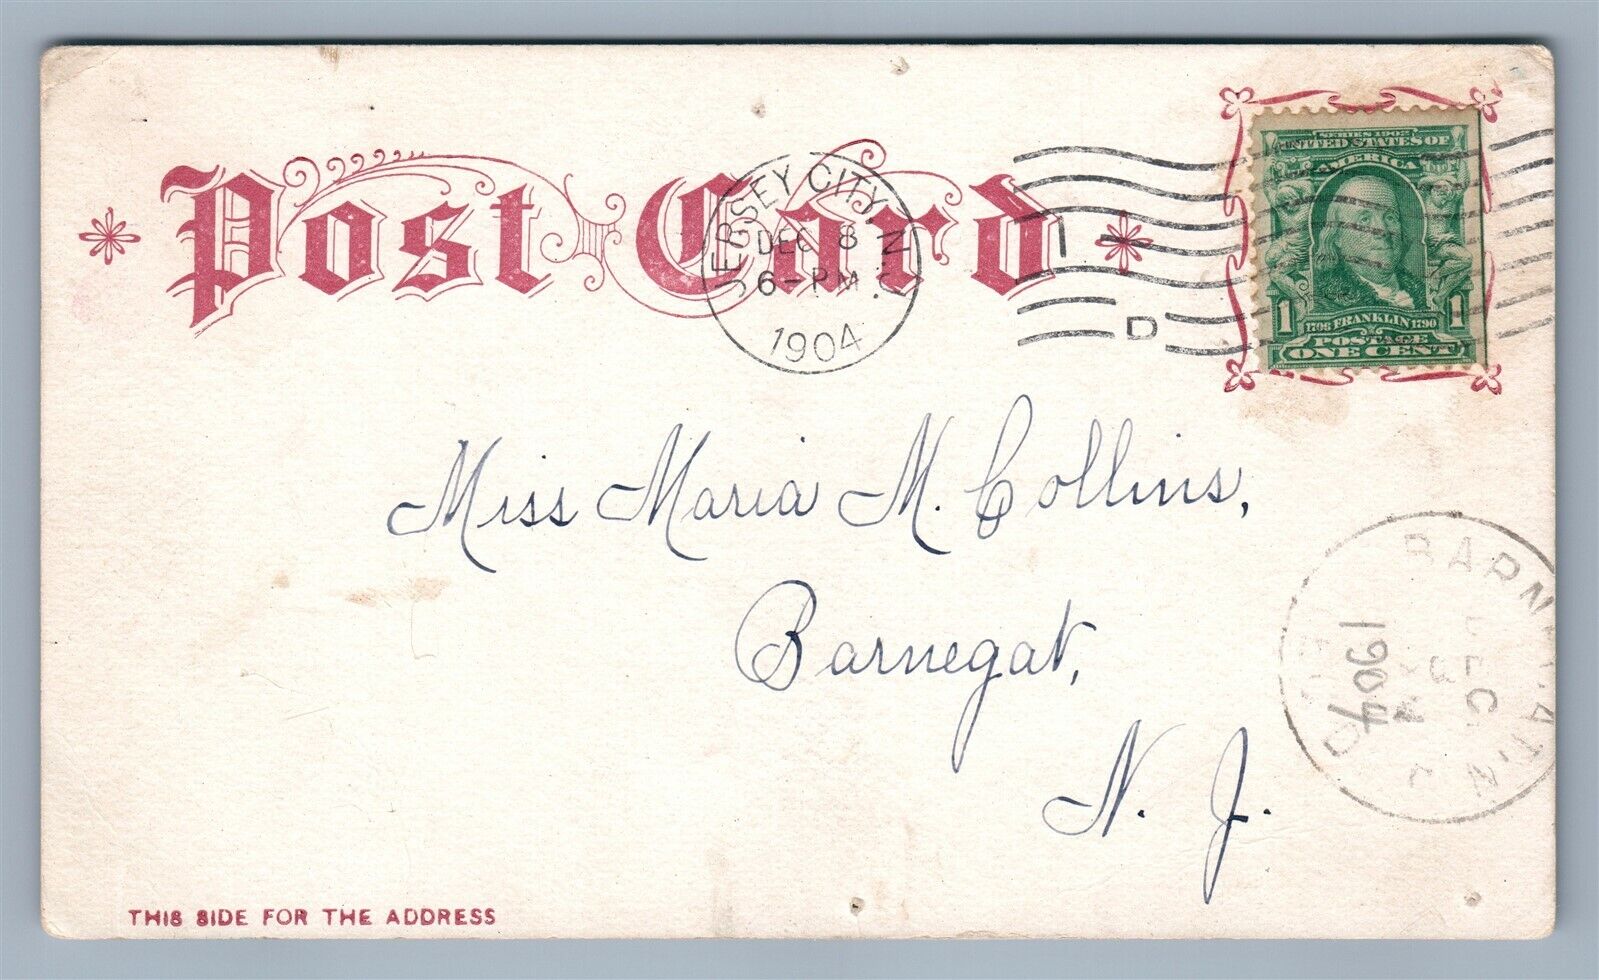 Post Card
JERSEY CITY, N.J.
DEC 8
6-PM
1904
1
D
SERIES 1902
UNITED STATES OF
AMERICA
1 1
1706 FRANKLIN 1790
POSTAGE
ONE CENT
Miss Maria M. Collins,
Barnegat,
N. J.
BARNEGAT, N.J.
DEC
1904
THIS SIDE FOR THE ADDRESS